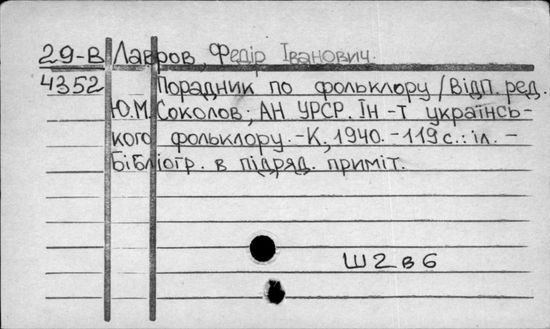 29-В Лавров, Федір Іванович.
4352 Порадник по фольклору / Відп. ред.
Ю.М. Соколов; АН УРСР. Ін-т українсь-
кого фольклору. - К, 1940. - 119 с.: іл. -
Бібліогр. в підряд. приміт.
Ш2в6